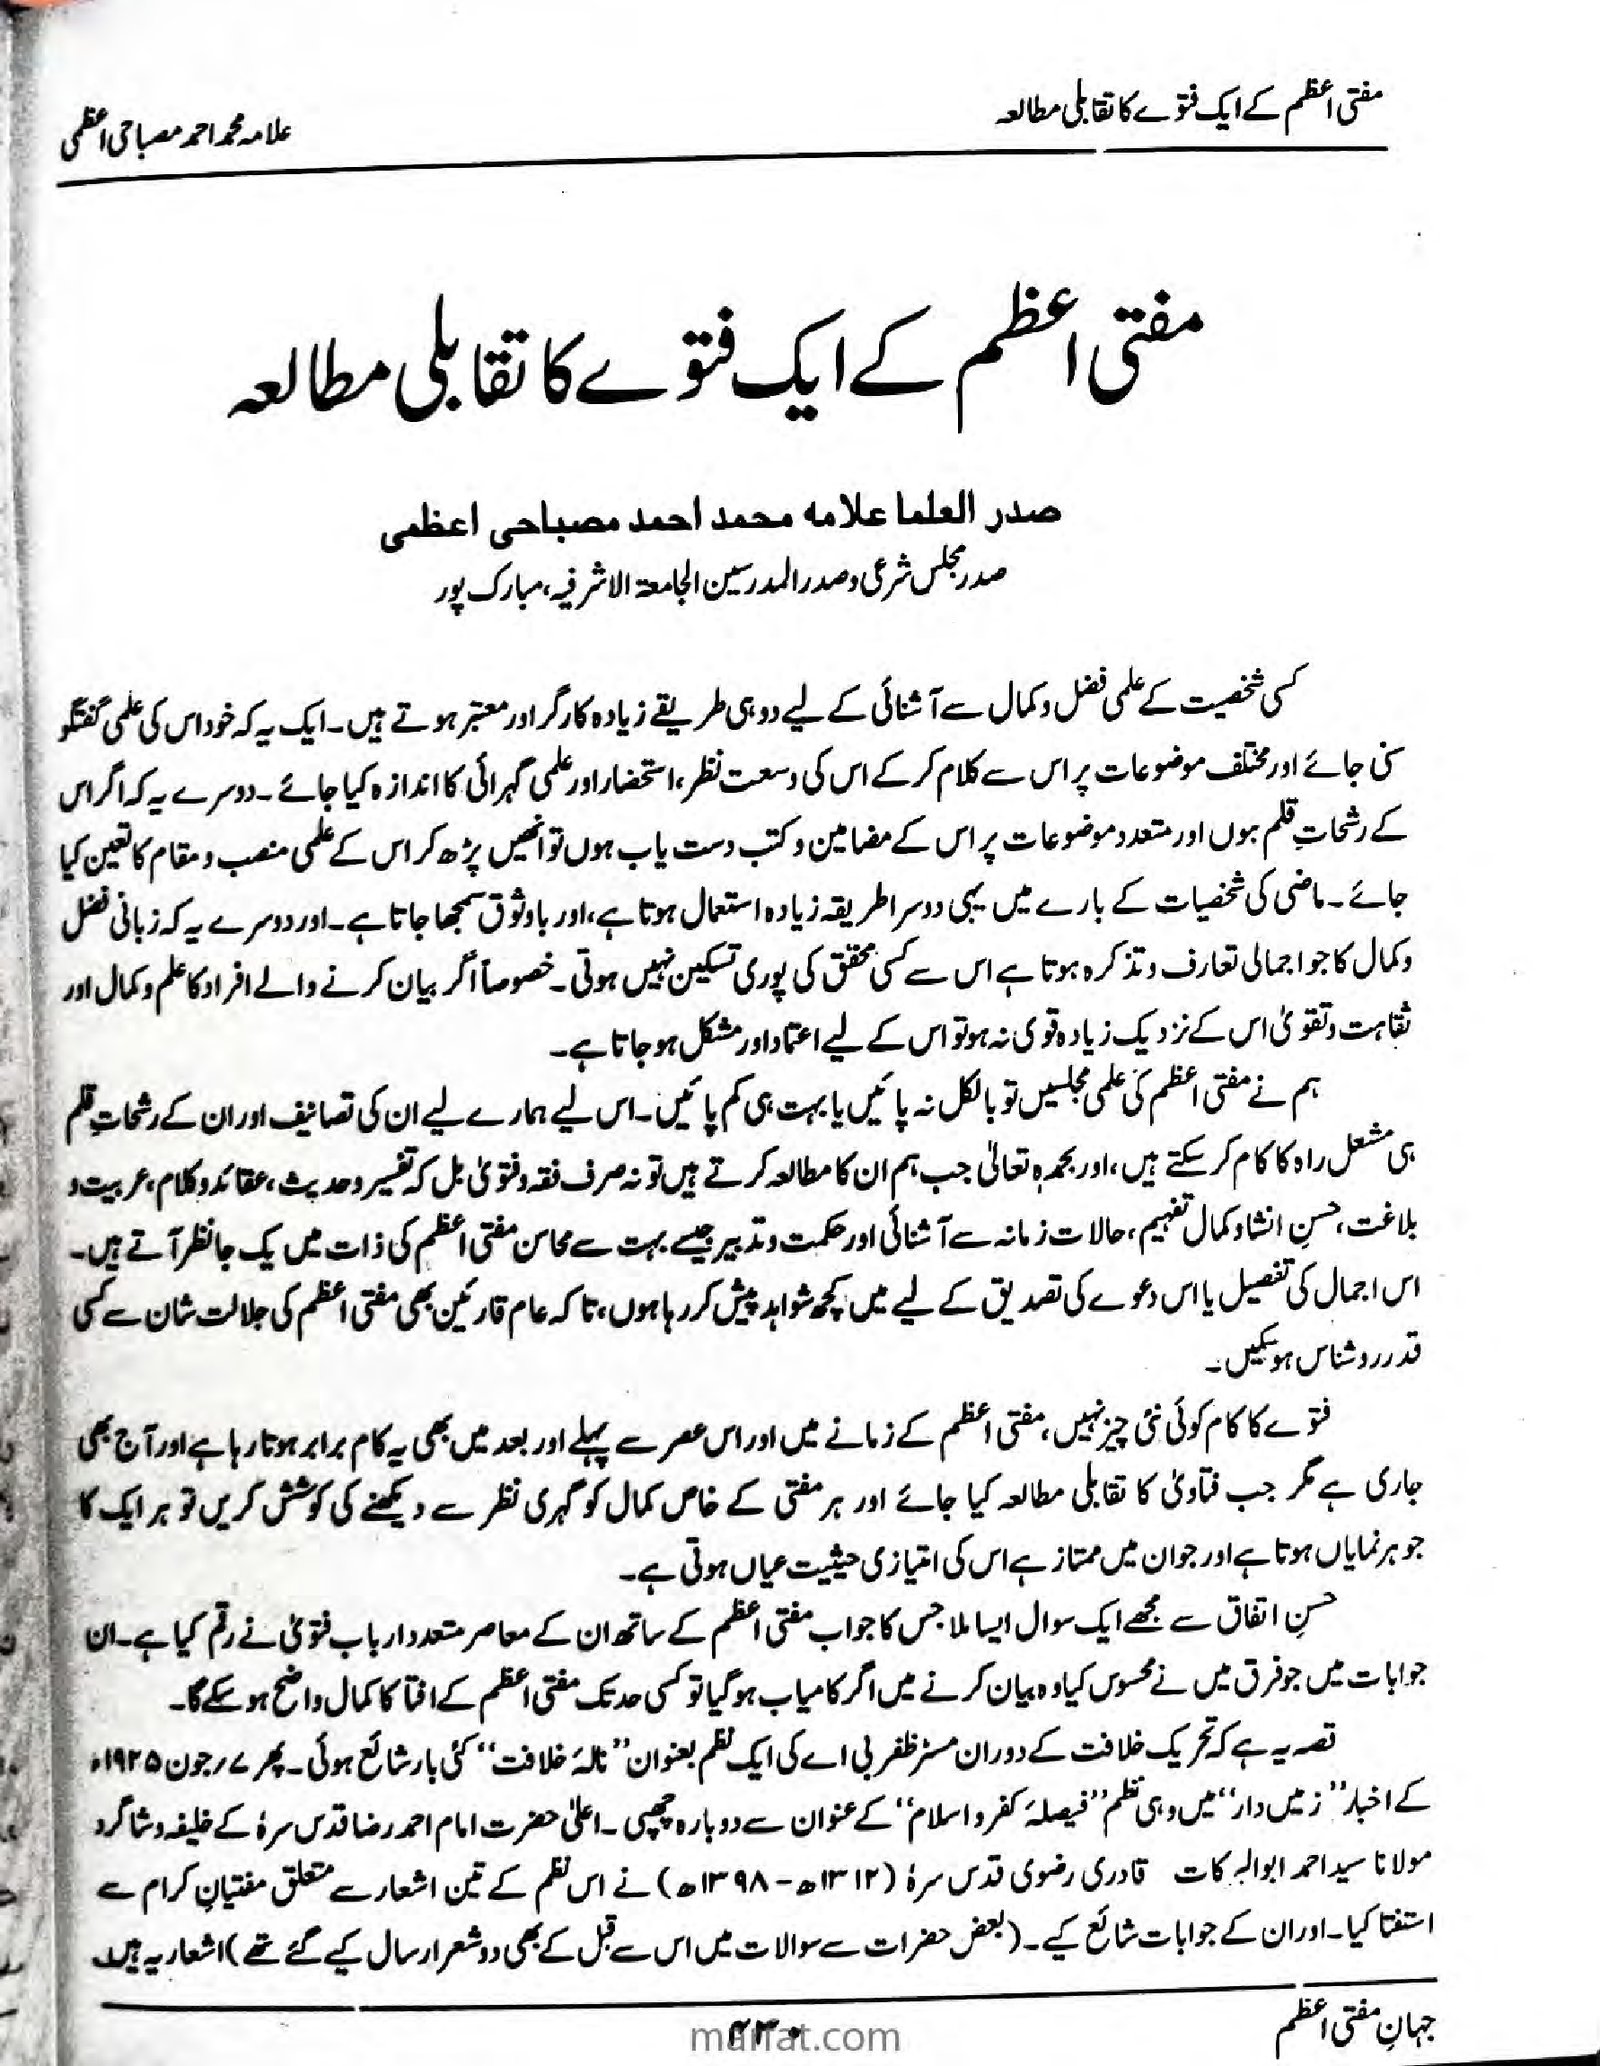 مفتی اعظم کے ایک فتوے کا تقابلی مطالعہ
علامہ محمد احمد مصباحی اعظمی
مفتی اعظم کے ایک فتوے کا تقابلی مطالعہ
صدر العلما علامہ محمد احمد مصباحی اعظمی
صدر مجلس شرعی و صدر المدرسین الجامعۃ الاشرفیہ، مبارک پور
کسی شخصیت کے علمی فضل و کمال سے آشنائی کے لیے دو ہی طریقے زیادہ کارگر اور معتبر ہوتے ہیں۔ ایک یہ کہ خود اس کی علمی گفتگو
سنی جائے اور مختلف موضوعات پر اس سے کلام کر کے اس کی وسعت نظر، استحضار اور علمی گہرائی کا اندازہ کیا جائے۔ دوسرے یہ کہ اگر اس
کے رشحاتِ قلم ہوں اور متعدد موضوعات پر اس کے مضامین و کتب دست یاب ہوں تو انھیں پڑھ کر اس کے علمی منصب و مقام کا تعین کیا
جائے۔ ماضی کی شخصیات کے بارے میں یہی دوسرا طریقہ زیادہ استعمال ہوتا ہے، اور باوثوق سمجھا جاتا ہے۔ اور دوسرے یہ کہ زبانی فضل
و کمال کا جو اجمالی تعارف و تذکرہ ہوتا ہے اس سے کسی محقق کی پوری تسکین نہیں ہوتی۔ خصوصاً اگر بیان کرنے والے افراد کا علم و کمال اور
ثقاہت و تقویٰ اس کے نزدیک زیادہ قوی نہ ہو تو اس کے لیے اعتماد اور مشکل ہو جاتا ہے۔
ہم نے مفتی اعظم کی علمی مجلسیں تو بالکل نہ پائیں یا بہت ہی کم پائیں۔ اس لیے ہمارے لیے ان کی تصانیف اور ان کے رشحاتِ قلم
ہی مشعل راہ کا کام کر سکتے ہیں، اور بحمدہٖ تعالیٰ جب ہم ان کا مطالعہ کرتے ہیں تو نہ صرف فقہ و فتویٰ بل کہ تفسیر و حدیث، عقائد و کلام، عربیت و
بلاغت، حسنِ انشا و کمال تفہیم، حالات زمانہ سے آشنائی اور حکمت و تدبیر جیسے بہت سے محاسن مفتی اعظم کی ذات میں یک جا نظر آتے ہیں۔
اس اجمال کی تفصیل یا اس دعوے کی تصدیق کے لیے میں کچھ شواہد پیش کر رہا ہوں، تا کہ عام قارئین بھی مفتی اعظم کی جلالت شان سے کسی
قدر روشناس ہو سکیں۔
فتوے کا کام کوئی نئی چیز نہیں، مفتی اعظم کے زمانے میں اور اس عصر سے پہلے اور بعد میں بھی یہ کام برابر ہوتا رہا ہے اور آج بھی
جاری ہے مگر جب فتاویٰ کا تقابلی مطالعہ کیا جائے اور ہر مفتی کے خاص کمال کو گہری نظر سے دیکھنے کی کوشش کریں تو ہر ایک کا
جوہر نمایاں ہوتا ہے اور جو ان میں ممتاز ہے اس کی امتیازی حیثیت عیاں ہوتی ہے۔
حسنِ اتفاق سے مجھے ایک سوال ایسا ملا جس کا جواب مفتی اعظم کے ساتھ ان کے معاصر متعدد ارباب فتویٰ نے رقم کیا ہے۔ ان
جوابات میں جو فرق میں نے محسوس کیا وہ بیان کرنے میں اگر کامیاب ہو گیا تو کسی حد تک مفتی اعظم کے افتا کا کمال واضح ہو سکے گا۔
قصہ یہ ہے کہ تحریک خلافت کے دوران مسٹر ظفر بی اے کی ایک نظم بعنوان ”نالۂ خلافت“ کئی بار شائع ہوئی۔ پھر ۷/جون ۱۹۲۵ء
کے اخبار ”زمیں دار“ میں وہی نظم ”فیصلۂ کفر و اسلام“ کے عنوان سے دوبارہ چھپی۔ اعلیٰ حضرت امام احمد رضا قدس سرہٗ کے خلیفہ و شاگرد
مولانا سید احمد ابوالبرکات قادری رضوی قدس سرہٗ (۱۳۱۲ھ - ۱۳۹۸ھ) نے اس نظم کے تین اشعار سے متعلق مفتیانِ کرام سے
استفتا کیا۔ اور ان کے جوابات شائع کیے۔ (بعض حضرات سے سوالات میں اس سے قبل کے بھی دو شعر ارسال کیے گئے تھے) اشعار یہ ہیں۔
جہانِ مفتی اعظم
۴۳۰
marfat.com